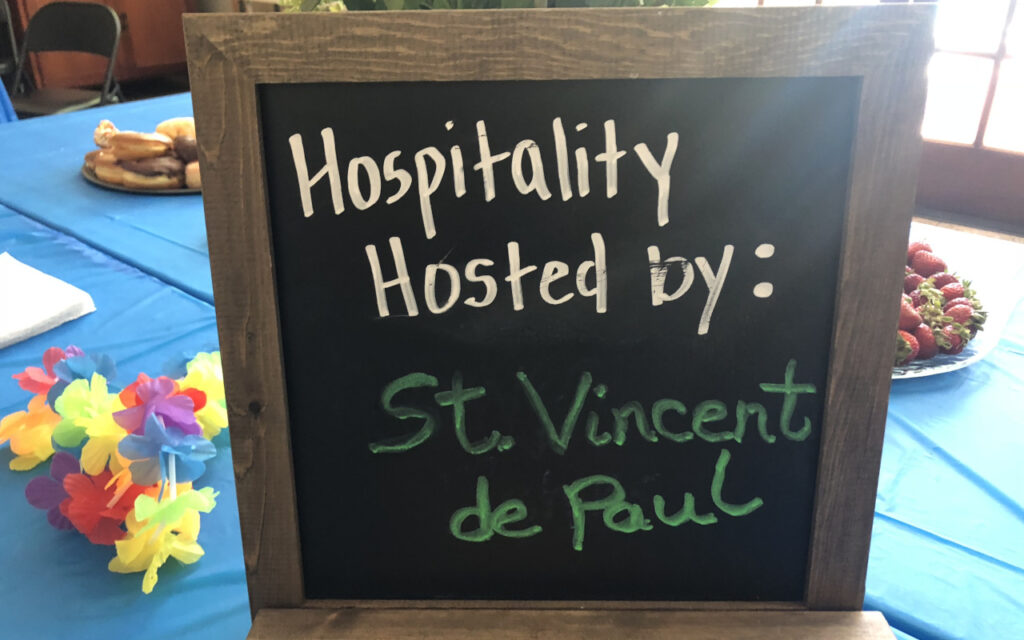 Hospitality
Hosted by:
St. Vincent
de Paul